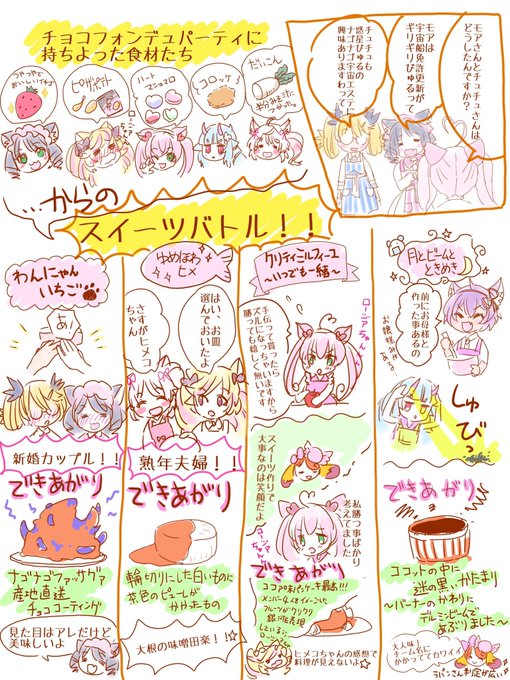 チョコフォンデュパーティに
持ちよった食材たち
つやつやで
おいしいイチゴ
ピザポテト
ハート
マシュマロ
コロッケ!
だいこん
モアさんとチュチュさんは
どうしたんですか?
モアは
宇宙船免許更新が
ギリギリぴゅるって
チュチュも
惑星ぴゅるの
ナゴナゴ宇宙エステに
興味ありますわって
…からの
スイーツバトル!!
わんにゃん
いちご
あ!
新婚カップル!!
できあがり
ナゴナゴファッサグァ
産地直送
チョココーティング
見た目はアレしだけど
美味しいよ
ゆめぽわ
ヒメ
はい、お皿
選んでおいたよ
さすがヒメコ
ちゃん
熟年夫婦!!
できあがり
輪切りにした白いものに
茶色のピールが
かかたもの
大根の味噌田楽!!
クリティミルフィーユ
~いつでも一緒~
ロージアちゃん
手伝って貰ったら
ズルになっちゃいますから
勝っても嬉しく無いです
スイーツ作りで
大事なのは笑顔だよ
私勝つ事ばかり
考えてました
できあがり
ココア味のパンケーキ最高!!!
メンバー4人をイメージした
フルーツがクッキリ
銀河を表現
している
ヒメコちゃんの感想で
料理が見えないよ
月とビームと
ときめき
前にお母様と
作った事あるの
お嬢様がある!
しゅ
びっ
できあがり
ココットの中に
謎の黒いかたまり
~バーナーのかわりに
デルミンビームで
あぶりました~
大人味!
チーム名に
かかっててカワイイ
ラパンさん判定が広い